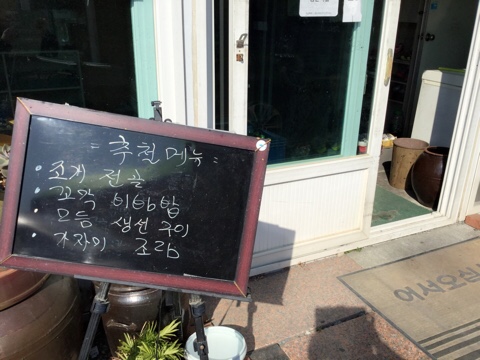 = 추천메뉴 =
• 조개 전골
• 꼬막 비빔밥
• 모듬 생선 구이
• 가자미 조림
어서오십